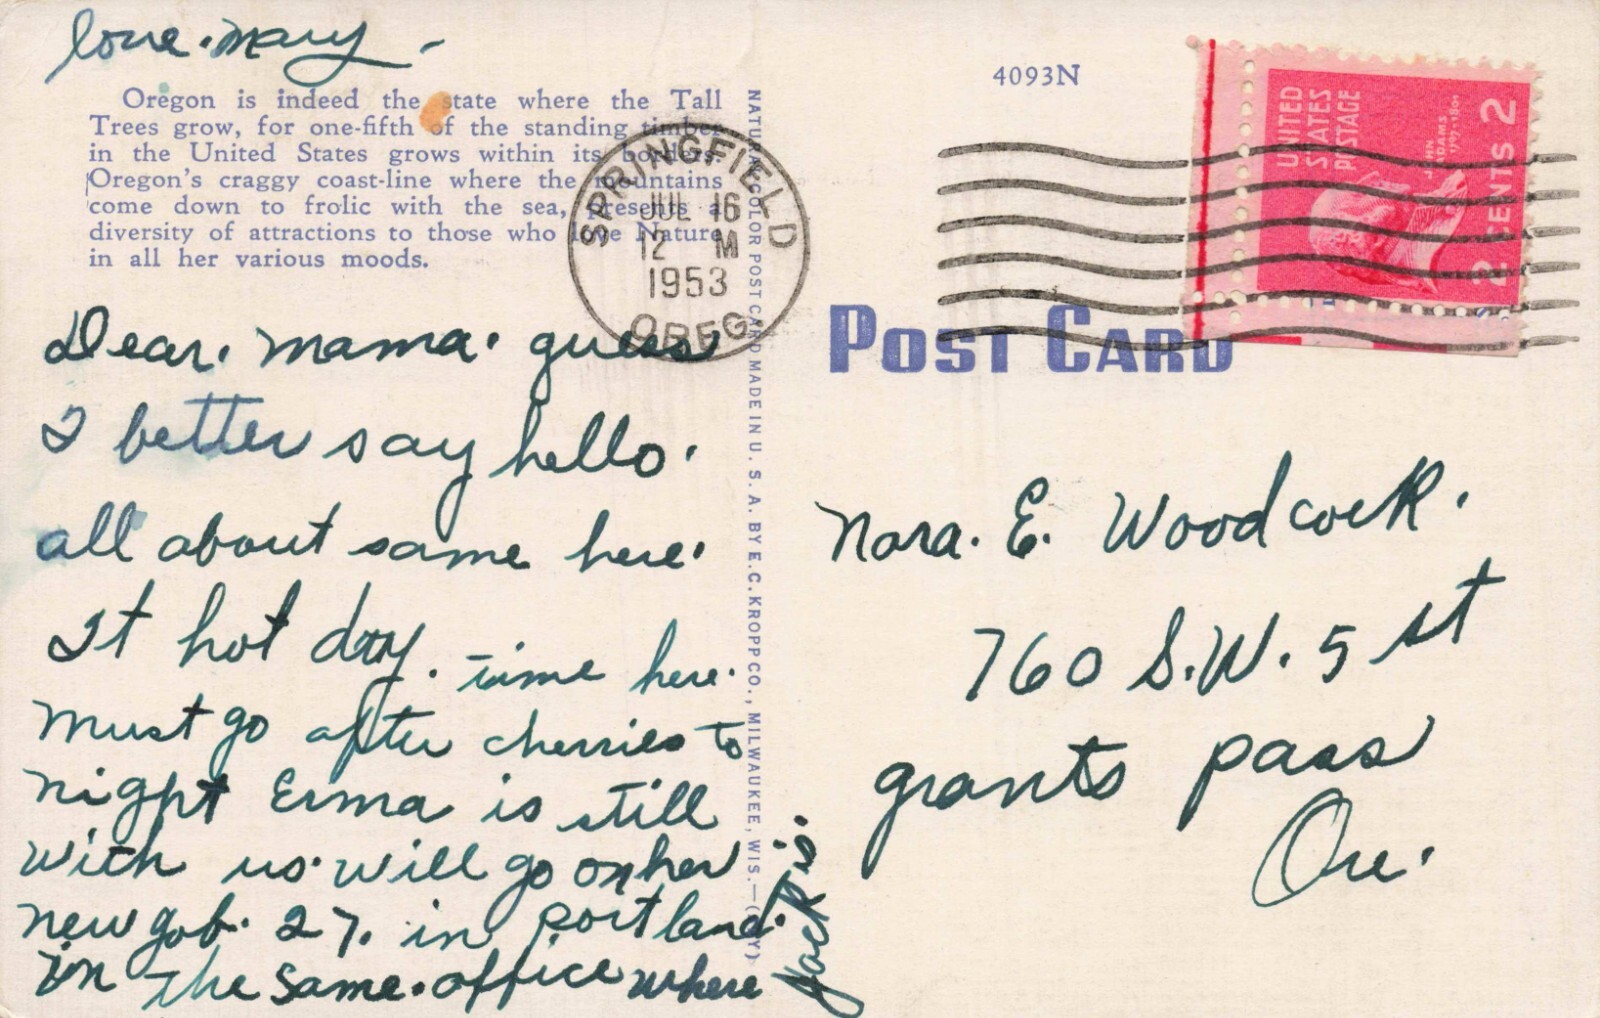 love. mary -
Oregon is indeed the state where the Tall
Trees grow, for one-fifth of the standing timber
in the United States grows within its borders.
Oregon's craggy coast-line where the mountains
come down to frolic with the sea, presents a
diversity of attractions to those who love Nature
in all her various moods.
Dear. mama. guess
I better say hello.
all about same here.
It hot day. time here.
must go after cherries to
night Erma is still
with us. will go on her
new gob. 27. in portland.
in the same. office where
Jack is.
NATURAL COLOR POST CARD MADE IN U. S. A. BY E. C. KROPP CO., MILWAUKEE, WIS.
4093N
SPRINGFIELD
JUL 16
12 M
1953
OREG
UNITED
STATES
POSTAGE
JOHN
ADAMS
1797-1801
2 CENTS 2
POST CARD
Nora. E. Woodcock.
760 S.W. 5 st
grants pass
Ore.